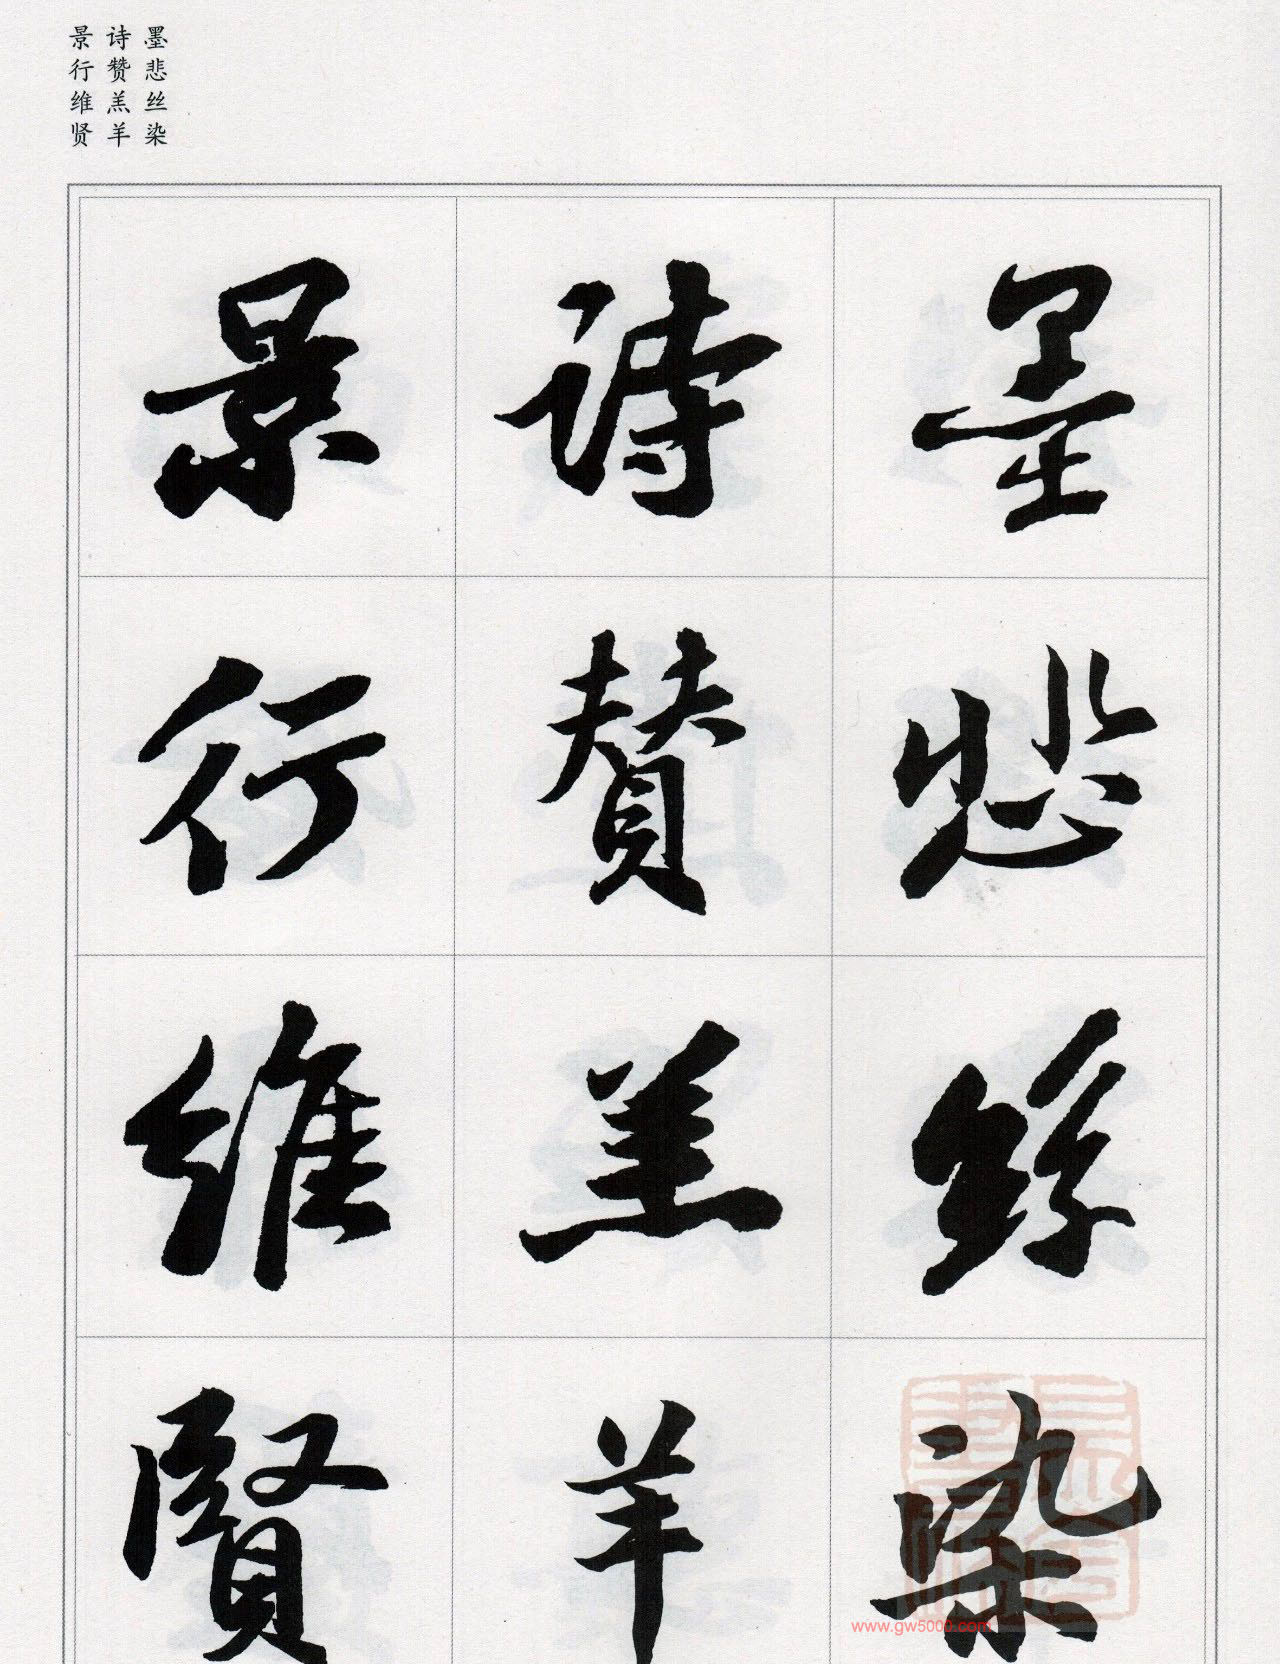 墨悲丝染
诗赞羔羊
景行维贤
墨悲絲染
詩賛羔羊
景行維賢
www.gw5000.com